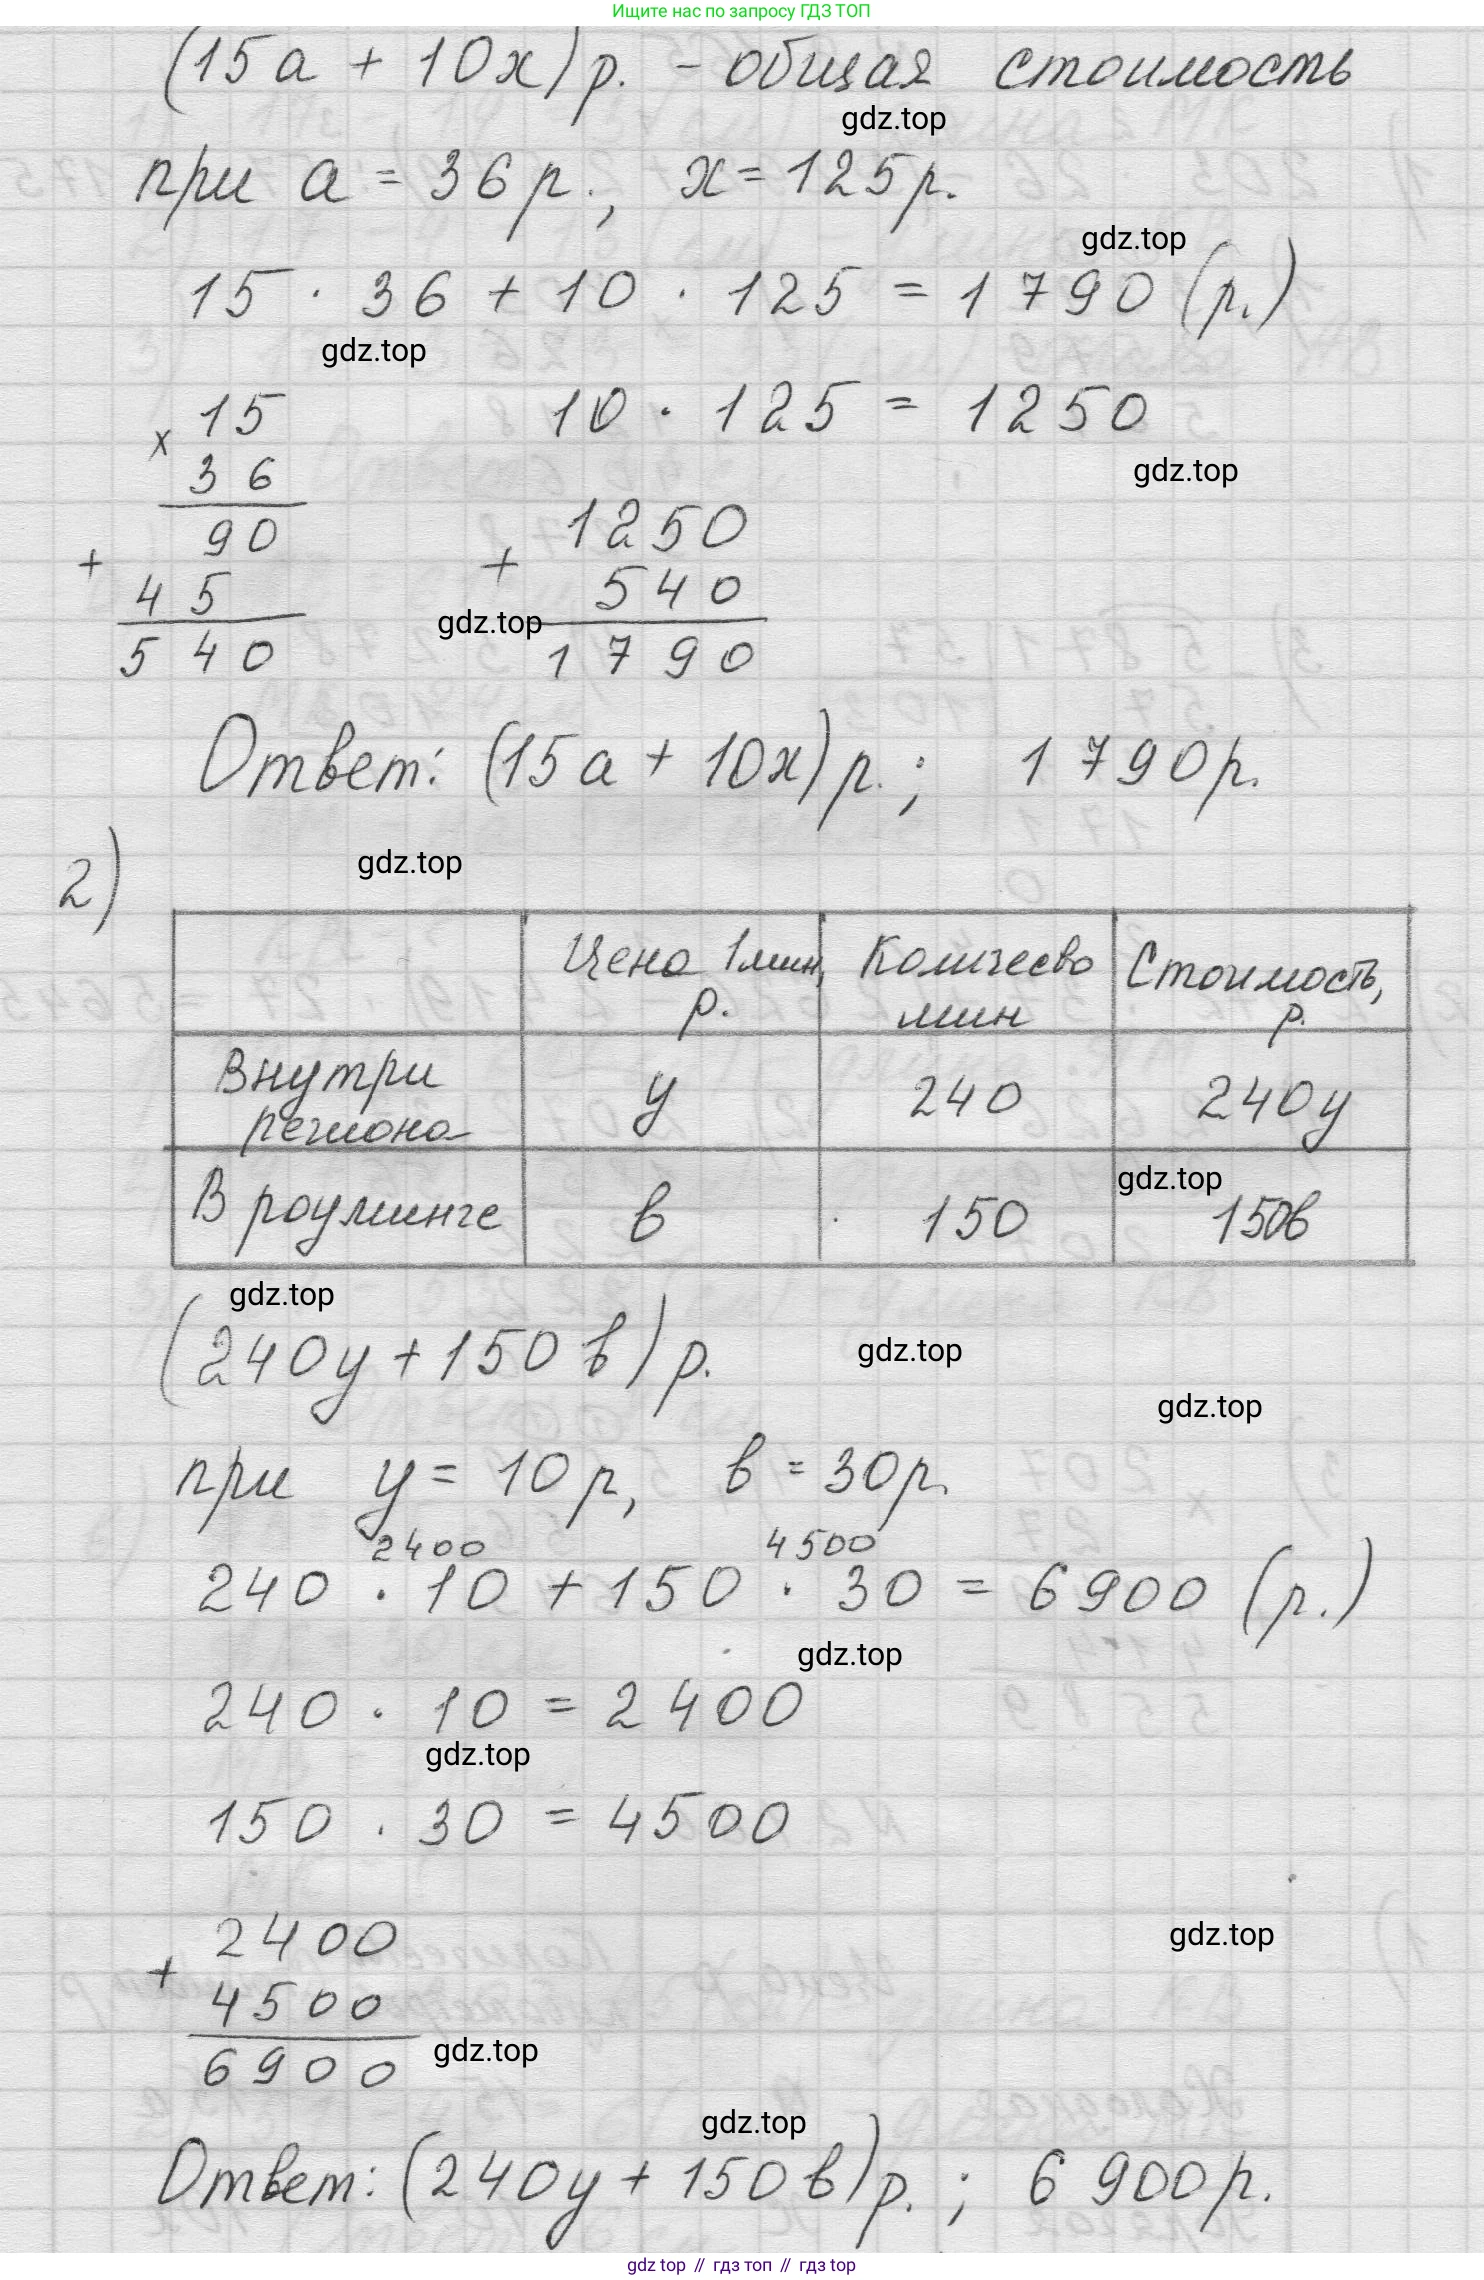 Ищите нас по запросу ГДЗ ТОП
(15а + 10х) р. - общая стоимость
gdz.top
при а = 36 р., х = 125 р.
gdz.top
15 · 36 + 10 · 125 = 1790 (р.)
gdz.top
10 · 125 = 1250
gdz.top
х 15
36
90
+ 45
540
1250
+ 540
gdz.top
1790
Ответ: (15а + 10х) р. ; 1790 р.
gdz.top
2)
Цена 1мин, р. Количесво мин Стоимость, р.
Внутри региона у 240 240у
gdz.top
В роуминге в 150 150в
gdz.top
(240у + 150в) р.
gdz.top
gdz.top
при у = 10 р, в = 30 р.
2400 4500
240 · 10 + 150 · 30 = 6900 (р.)
gdz.top
240 · 10 = 2400
gdz.top
150 · 30 = 4500
2400
gdz.top
+ 4500
6900
gdz.top
gdz.top
Ответ: (240у + 150в) р. ; 6900 р.
gdz top // гдз топ // гдз top